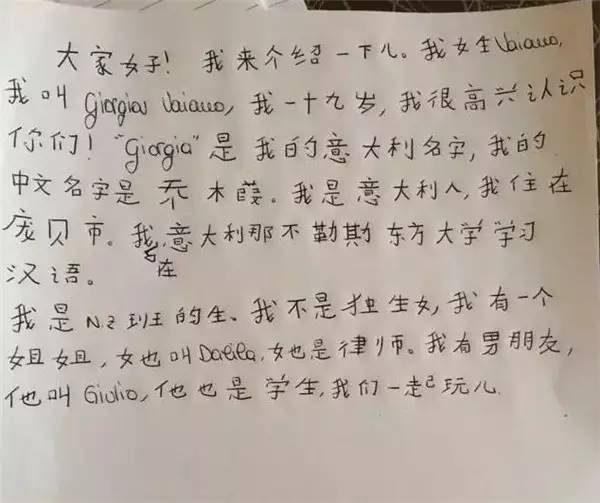 大家好！我来介绍一下儿。我女生Vaiano,
我叫 Giorgia Vaiano, 我一十九岁, 我很高兴认识
你们！“Giorgia”是我的意大利名字, 我的
中文名字是乔木葭。我是意大利人, 我住在
庞贝市。我在意大利那不勒斯东方大学学习
汉语。
我是 N.2 班的生、我不是独生女, 我有一个
姐姐, 她叫 Dalila, 她是律师。我有男朋友,
他叫 Giulio, 他也是学生, 我们一起玩儿.